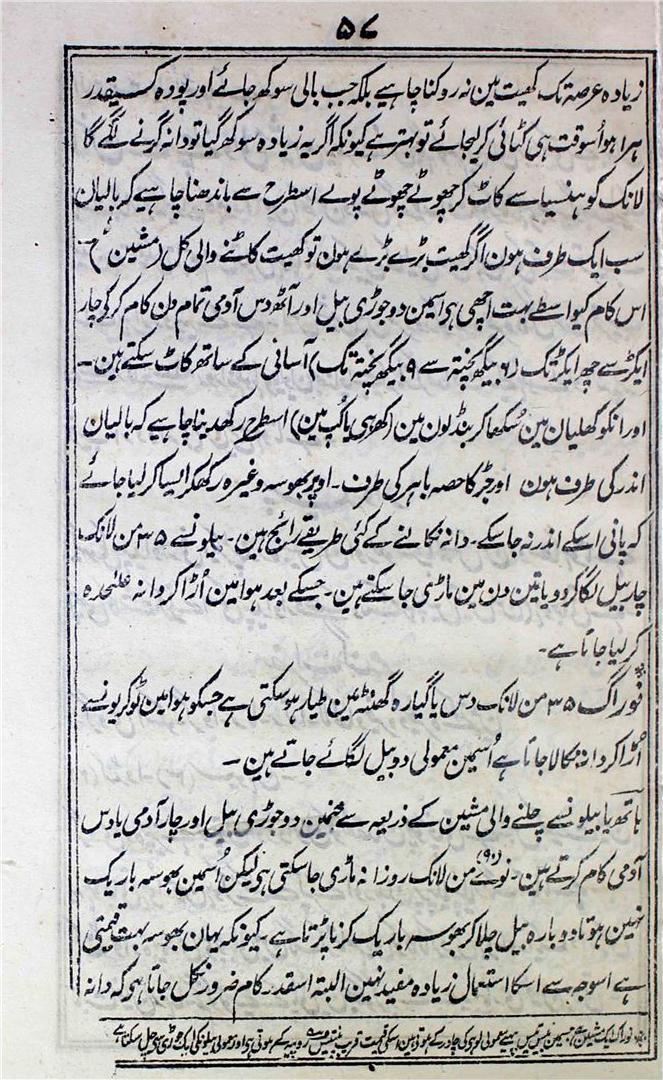 ۵۷
زیادہ عرصہ تک کھیت مین نہ روکنا چاہیے بلکہ جب بالی سوکھ جائے اور پودہ کسیقدر
ہرا ہو اُسوقت ہی کٹائی کر لیجائے تو بہتر ہے کیونکہ اگر یہ زیادہ سوکھ گیا تو دانہ گرنے لگے گا
لانک کو ہنسیا سے کاٹ کر چھوٹے چھوٹے پولے اسطرح سے باندھنا چاہیے کہ بالیان
سب ایک طرف ہون اگر کھیت بڑے بڑے ہون تو کھیت کاٹنے والی کل (مشین)
اس کام کیواسطے بہت اچھی ہی اسمین دو جوڑی بیل اور آٹھ دس آدمی تمام دن کام کر کے چار
ایکڑ سے چھ ایکڑ تک (۶ بیگھ پختہ سے ۹ بیگھ پختہ تک) آسانی کے ساتھ کاٹ سکتے ہین۔
اور انکو کھلیان مین سُکھا کر بنڈلون مین (کھرہی یا کُپ مین) اسطرح رکھدینا چاہیے کہ بالیان
اندر کی طرف ہون اور جڑ کا حصہ باہر کی طرف۔ اوپر بھوسہ وغیرہ رکھکر ایسا کر لیا جائے
کہ پانی اسکے اندر نہ جا سکے۔ دانہ نکالنے کے کئی طریقے رائج ہین۔ بیلونسے ۳۵ من لانک
چار بیل لگا کر دو یا تین دن مین ماڑی جا سکتے ہین۔ جسکے بعد ہوا مین اُڑا کر دانہ علٰحدہ
کر لیا جاتا ہے۔
نوراگ ۳۵ من لانک دس یا گیارہ گھنٹہ مین طیار ہو سکتی ہے جسکو ہوا مین ٹوکریونسے
اُڑا کر دانہ نکالا جاتا ہے اُسمین معمولی دو بیل لگائے جاتے ہین۔
ہاتھ یا بیلونسے چلنے والی مشین کے ذریعہ سے جنمین دو جوڑی بیل اور چار آدمی یا دس
آدمی کام کرتے ہین۔ نوے (۹۰) من لانک روزانہ ماڑی جا سکتی ہی لیکن اُسمین بھوسہ باریک
نہین ہوتا دوبارہ بیل چلا کر بھوسہ باریک کرنا پڑتا ہے۔ کیونکہ یہان بھوسہ بہت قیمتی
ہے اسوجہ سے اسکا استعمال زیادہ مفید نہین البتہ اسقدر کام ضرور نکل جاتا ہو کہ دانہ
نوراگ ایک مشین ہے جسمین بیس تیس پہیے معمولی لوہے کی چادر کے ہوتے ہین اسکی قیمت قریب پینتیس روپیہ کے ہوتی ہی اور معمولی بیلونکی ایک جوڑی سے چل سکتا ہے